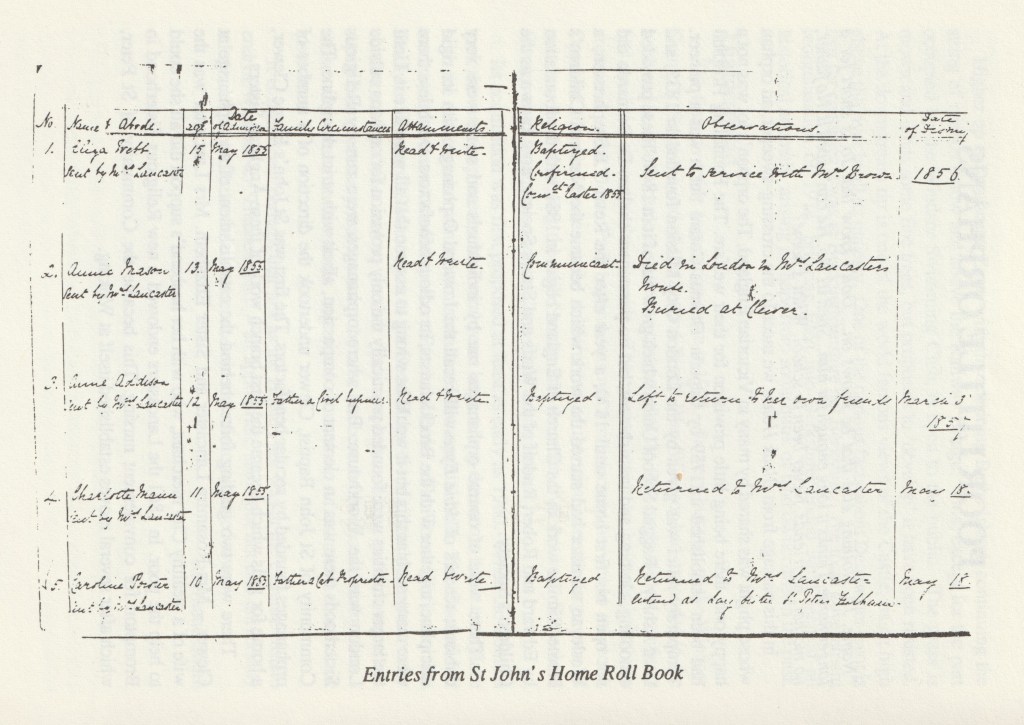 No. Name & Abode. age Date of Admission Family Circumstances Attainments. Religion. Observations. Date of
1. Eliza 15 May 1855 Read & Write. Baptized.
sent by Mrs Lancaster Confirmed. Sent to service with Mrs Brown. 1856.
Easter 1855.
2. Annie Mason 13. May 1855 Read & Write. Communicant. Died in London in Mrs Lancaster's
sent by Mrs Lancaster House.
Buried at Clewer.
3. Annie Addison
sent by Mrs Lancaster 12 May 1855 Father a Civil Engineer. Read & Write. Baptized. Left to return to her own friends March 3
1857
4. Charlotte Mann 11. May 1855 Returned to Mrs Lancaster May 18.
sent by Mrs Lancaster
5. Caroline 10. May 1855 Father a Cab Proprietor. Read & Write. Baptized Returned to Mrs Lancaster May 18.
sent by Mrs Lancaster as Lay Sister St Peters
Entries from St John's Home Roll Book